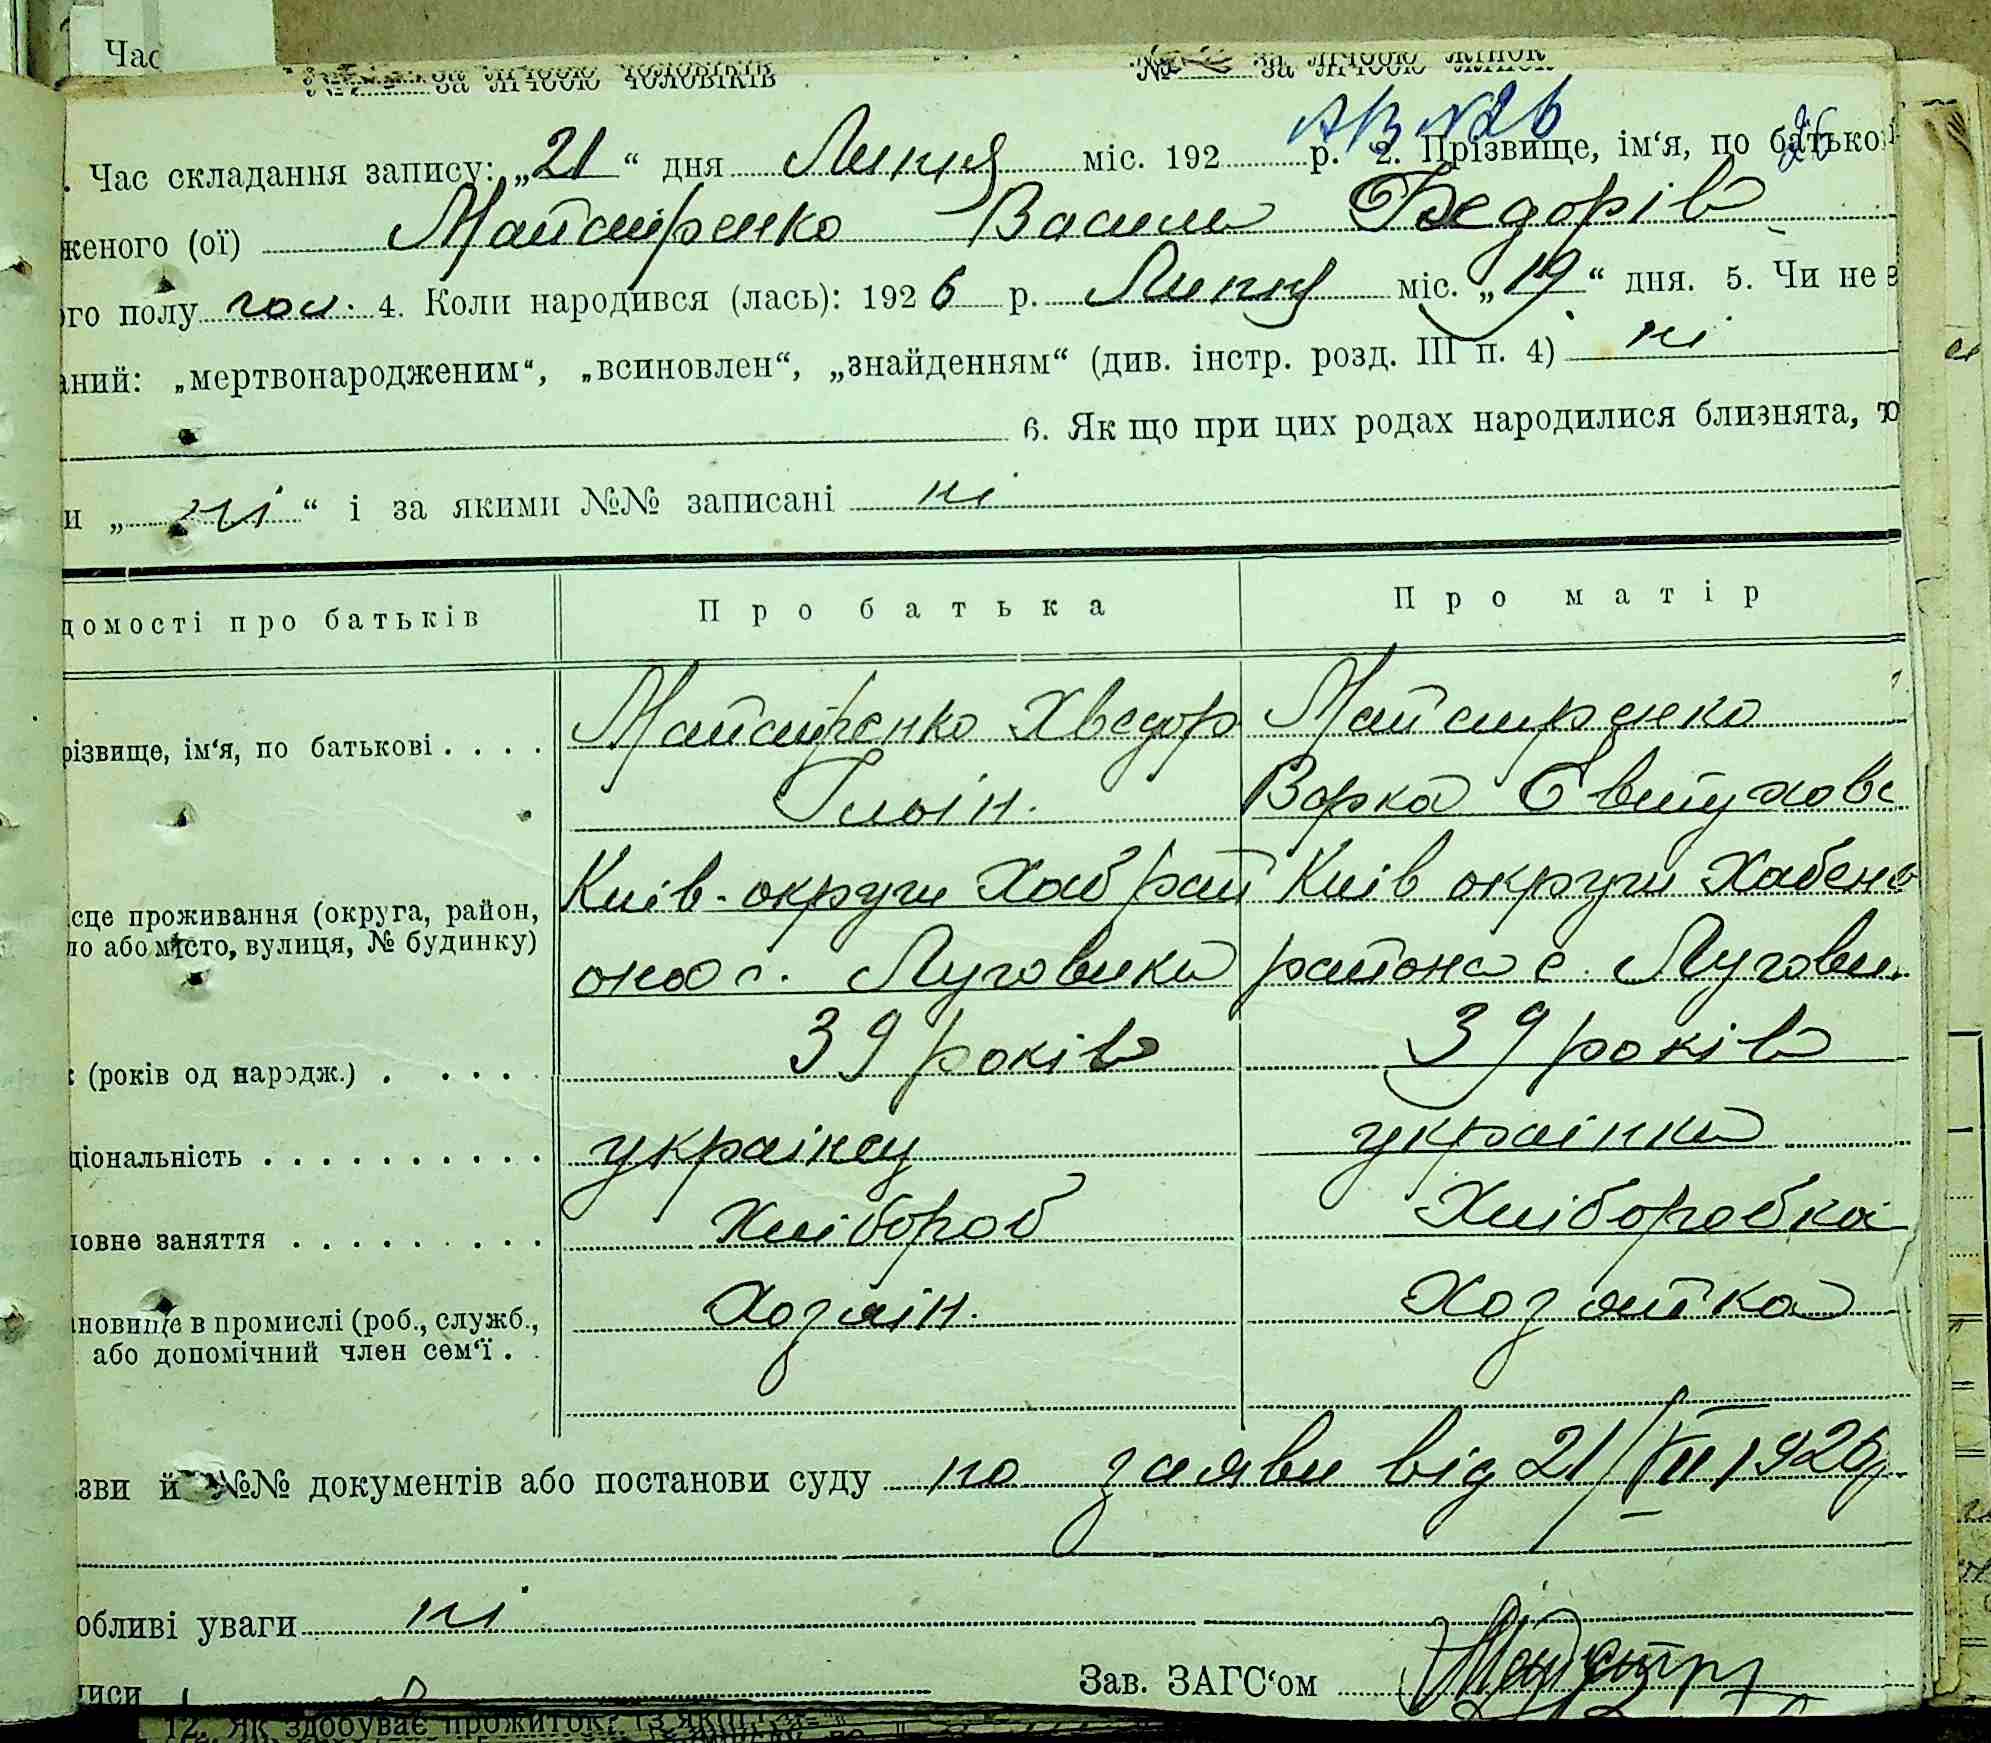 Час
№ за лічбою чоловіків № за лічбою жінок
АВ №26 26
. Час складання запису: „21“ дня Липня міс. 192 р. 2. Прізвище, ім‘я, по батькові
женого (ої) Майстренко Василь Федорів
ого полу чол. 4. Коли народився (лась): 1926 р. Липня міс. „19“ дня. 5. Чи не з
аний: „мертвонародженим“, „всиновлен“, „знайденням“ (див. інстр. розд. III п. 4) ні
6. Як що при цих родах народилися близнята, то
и „ні“ і за якими №№ записані ні
домості про батьків Про батька Про матір
різвище, ім‘я, по батькові . . . . Майстренко Хведор Майстренко
Ільін. Варка Євтухов
Київ. округи Хаб рай Київ округи Хабенс
ісце проживання (округа, район,
ло або місто, вулиця, № будинку)
она с. Луговики района с. Лугови
к (років од народж.) . . . . . 39 років 39 років
ціональність . . . . . . . . . . українец українка
ловне заняття . . . . . . . . . Хлібороб Хліборобка
ановище в промислі (роб., служб., Хозяін. Хозяйка
або допомічний член сем‘ї . .
зви й №№ документів або постанови суду по заяви від 21/VII 1926р
обливі уваги ні
писи Зав. ЗАГС‘ом
12. Як здобуває прожиток?